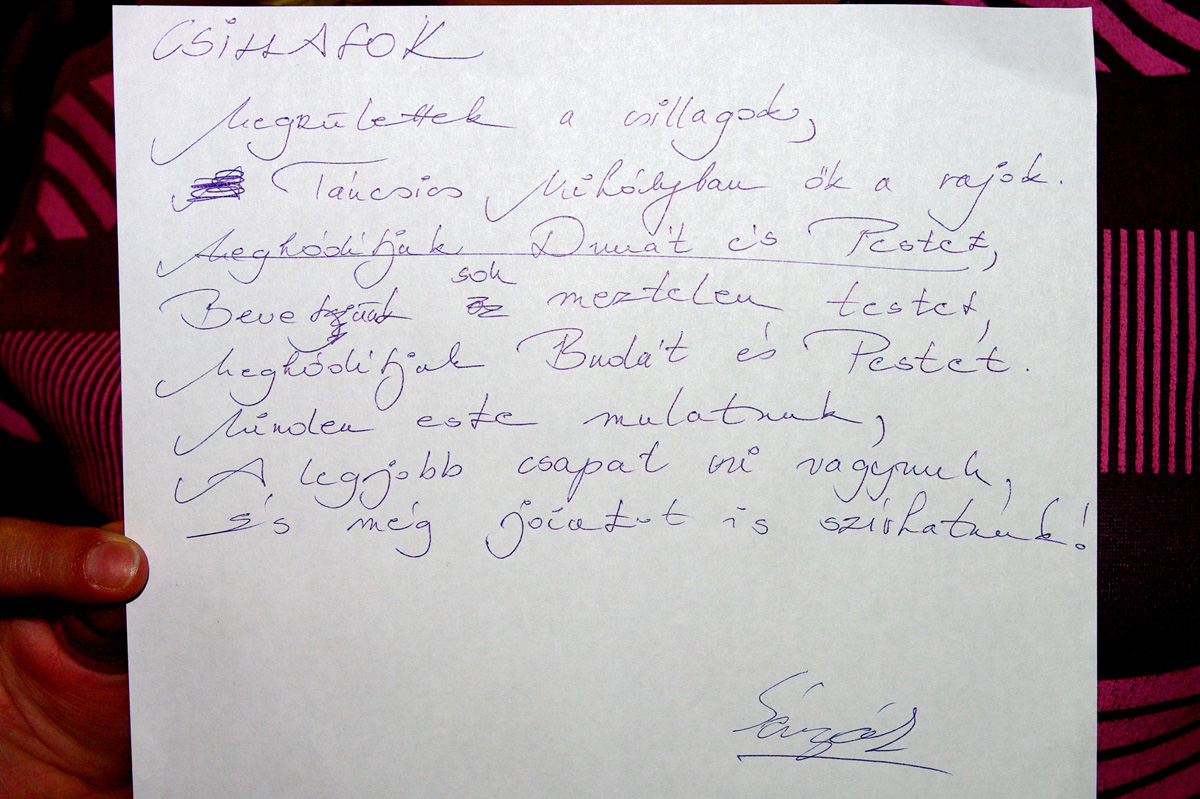 CSILLAGOK
Megszülettek a csillagok,
Táncsics Mihályban ők a rajok.
Meghódítjuk Dunát és Pestet,
sok
Bevetzünk meztelen testet,
Meghódítjuk Budát és Pestet.
Minden este mulatunk,
A legjobb csapat mi vagyunk,
És még is szívhatunk!